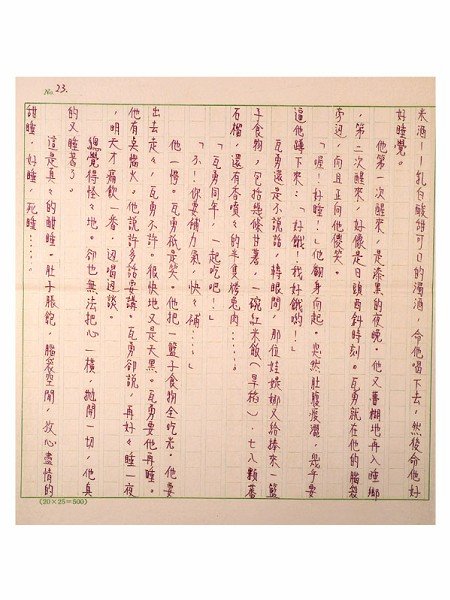 No. 23.
米酒——乳白酸甜可口的濁酒,令他喝下去,然後命他好
好睡覺。
他第一次醒來,是漆黑的夜晚。他又舊糊地再入睡鄉
。第二次醒來,好像是日頭西斜時刻。瓦勇就在他的腦袋
旁邊,而且正向他傻笑。
「喔!好睡!」他翻身向起。忽然肚腹痠癟,幾乎要
逼他蹲下來:「好餓!我好餓喲!」
瓦勇還是不說話,轉眼間,那位娃娥娜又給捧來一籃
子食物,包括幾條甘薯,一碗紅米飯(旱稻)、七八顆蕃
石榴,還有香噴々的半隻烤兔肉……。
「瓦勇同年,一起吃吧!」
「不!你要補力氣,快々補……。」
他一愣。瓦勇祇是笑。他把一籃子食物全吃光。他要
出去走々,瓦勇不許。很快地又是天黑。瓦勇要他再睡。
他有臭燈火。他說許多話要講。瓦勇卻說,再好々睡一夜
,明天才痛飲一番,邊喝邊談。
總覺得怪々地。卻也無法把心一橫,拋開一切,他真
的又睡著了。
這是真々的酣睡。肚子脹飽,腦袋空閒,放心盡情的
甜睡,好睡,死睡……。
(20×25=500)